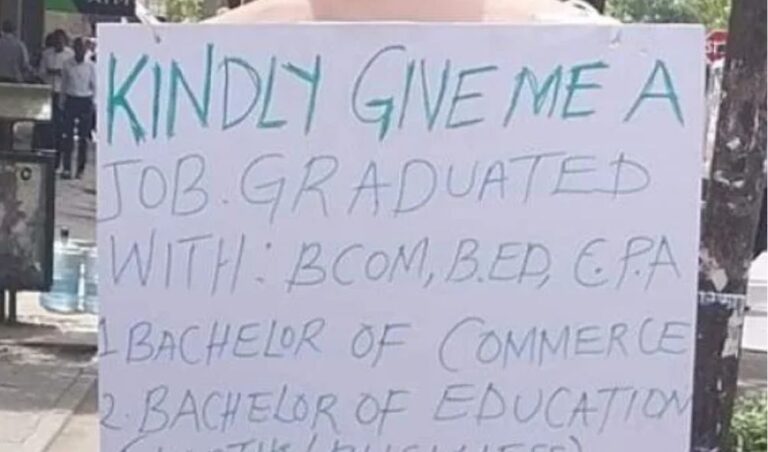 KINDLY GIVE ME A
JOB. GRADUATED
WITH: BCOM, B.ED, C.P.A
1 BACHELOR OF COMMERCE
2. BACHELOR OF EDUCATION